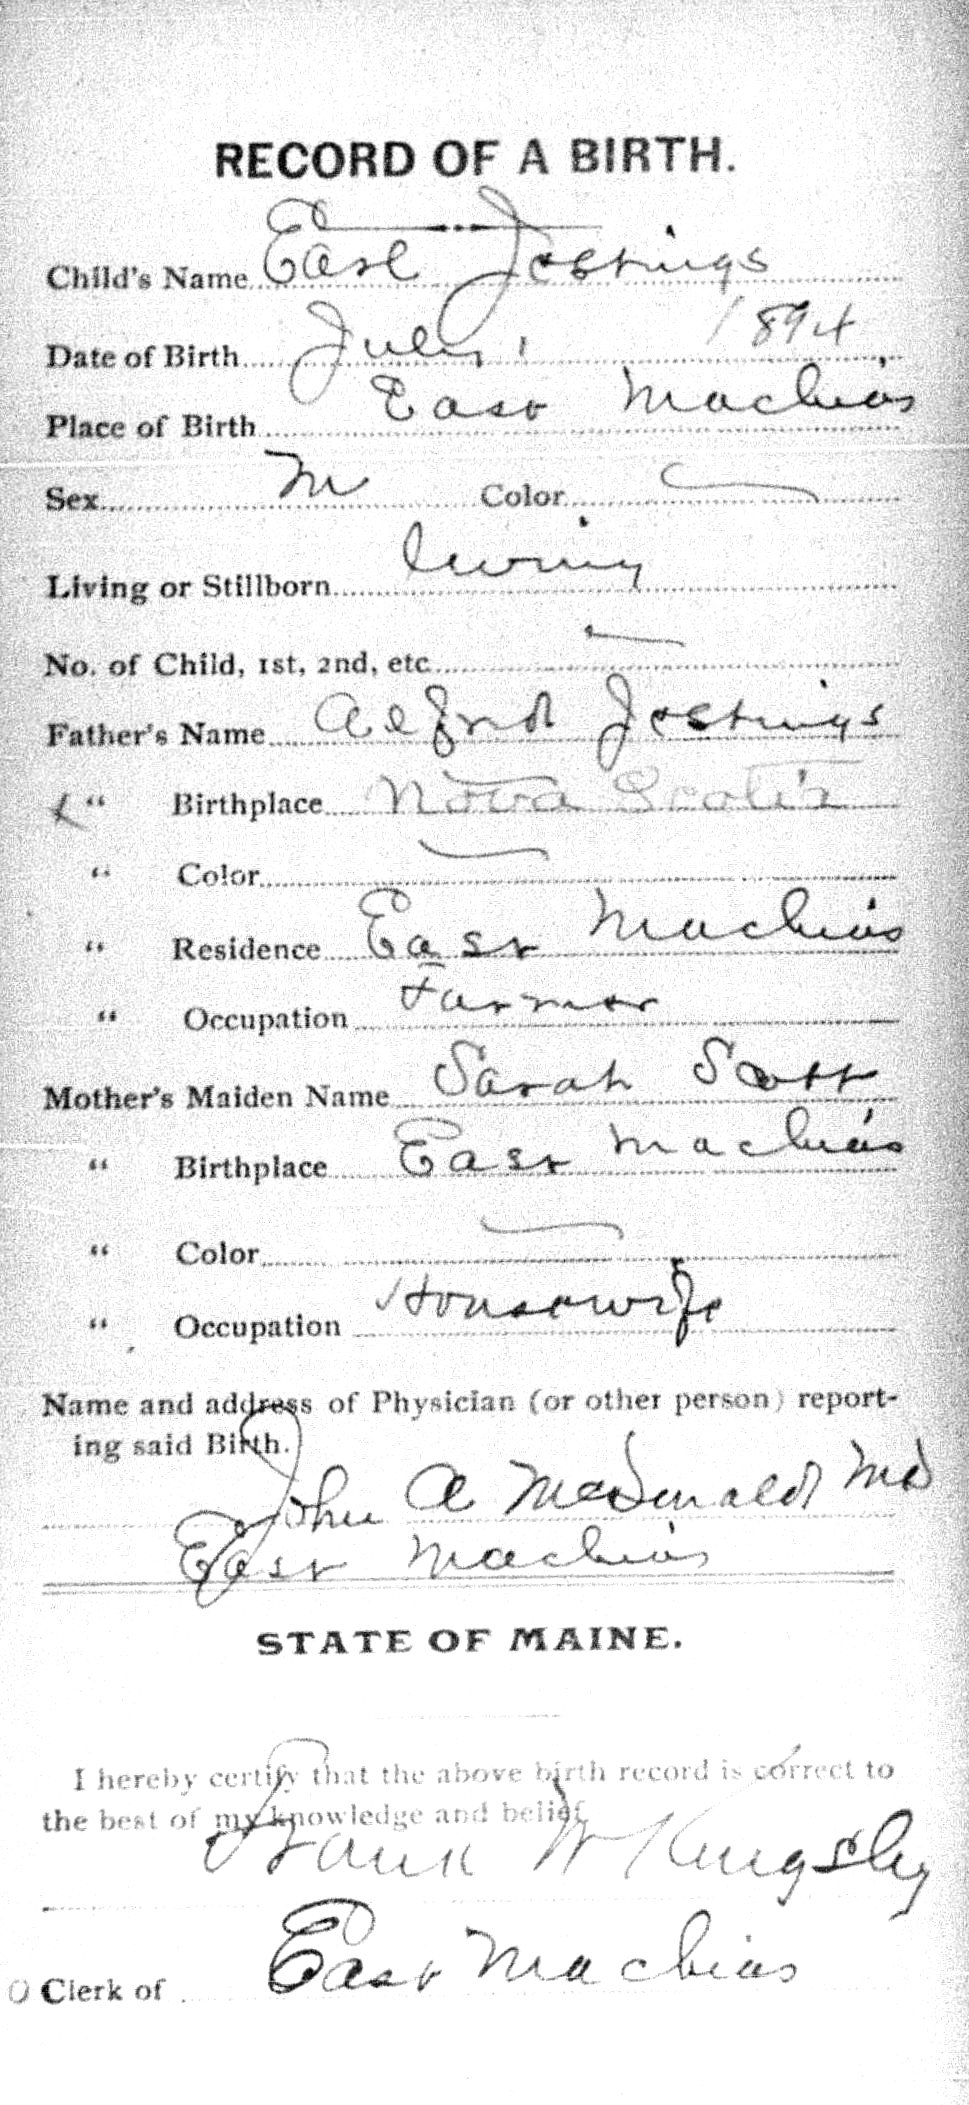 RECORD OF A BIRTH.
Child's Name Earl Jostings
Date of Birth July 1 1894
Place of Birth East Machias
Sex M Color
Living or Stillborn living
No. of Child, 1st, 2nd, etc
Father's Name Alfred Jostings
" Birthplace Nova Scotia
" Color
" Residence East Machias
" Occupation Farmer
Mother's Maiden Name Sarah Scott
" Birthplace East Machias
" Color
" Occupation Housewife
Name and address of Physician (or other person) report-
ing said Birth.
John A McDonald MD
East Machias
STATE OF MAINE.
I hereby certify that the above birth record is correct to
the best of my knowledge and belief
Frank W Kingsley
Clerk of East Machias